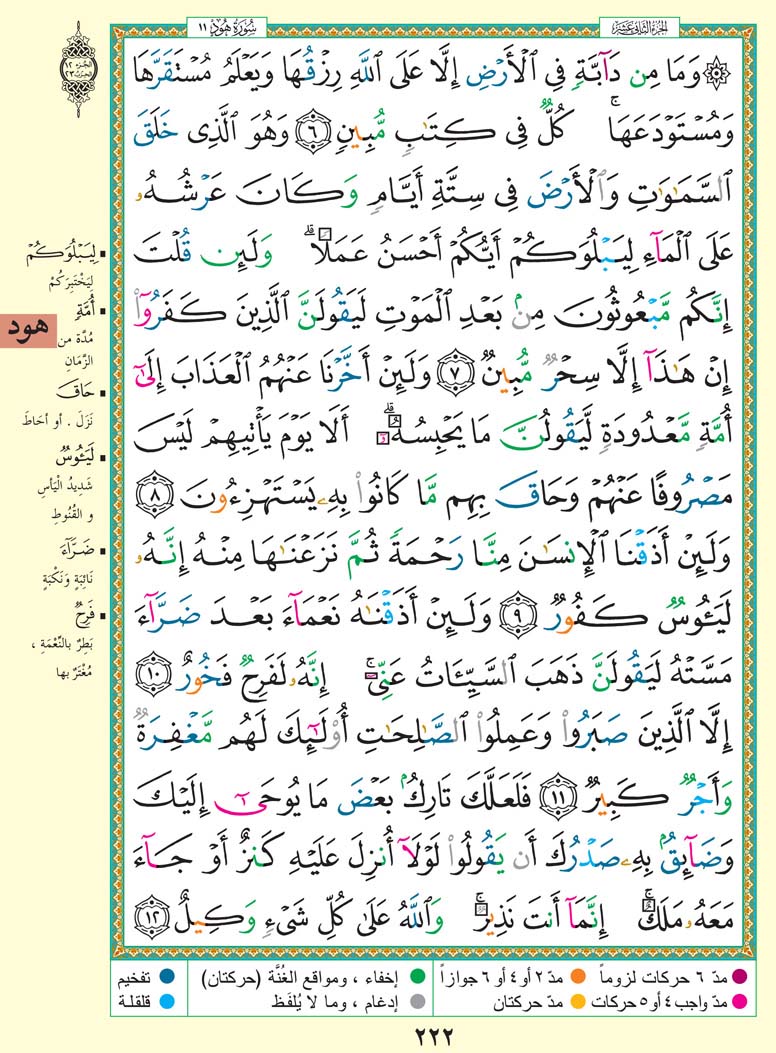 سُورَةُ هُودٍ ١١
الجزء الثاني عشر
الجزء ١٢
الحزب ٢٣
۞ وَمَا مِن دَآبَّةٖ فِي ٱلۡأَرۡضِ إِلَّا عَلَى ٱللَّهِ رِزۡقُهَا وَيَعۡلَمُ مُسۡتَقَرَّهَا
وَمُسۡتَوۡدَعَهَاۚ كُلّٞ فِي كِتَٰبٖ مُّبِينٖ ٦ وَهُوَ ٱلَّذِي خَلَقَ
ٱلسَّمَٰوَٰتِ وَٱلۡأَرۡضَ فِي سِتَّةِ أَيَّامٖ وَكَانَ عَرۡشُهُۥ
عَلَى ٱلۡمَآءِ لِيَبۡلُوَكُمۡ أَيُّكُمۡ أَحۡسَنُ عَمَلٗاۗ وَلَئِن قُلۡتَ
إِنَّكُم مَّبۡعُوثُونَ مِنۢ بَعۡدِ ٱلۡمَوۡتِ لَيَقُولَنَّ ٱلَّذِينَ كَفَرُوٓاْ
إِنۡ هَٰذَآ إِلَّا سِحۡرٞ مُّبِينٞ ٧ وَلَئِنۡ أَخَّرۡنَا عَنۡهُمُ ٱلۡعَذَابَ إِلَىٰٓ
أُمَّةٖ مَّعۡدُودَةٖ لَّيَقُولُنَّ مَا يَحۡبِسُهُۥٓۗ أَلَا يَوۡمَ يَأۡتِيهِمۡ لَيۡسَ
مَصۡرُوفًا عَنۡهُمۡ وَحَاقَ بِهِم مَّا كَانُواْ بِهِۦ يَسۡتَهۡزِءُونَ ٨
وَلَئِنۡ أَذَقۡنَا ٱلۡإِنسَٰنَ مِنَّا رَحۡمَةٗ ثُمَّ نَزَعۡنَٰهَا مِنۡهُ إِنَّهُۥ
لَيَـُٔوسٞ كَفُورٞ ٩ وَلَئِنۡ أَذَقۡنَٰهُ نَعۡمَآءَ بَعۡدَ ضَرَّآءَ
مَسَّتۡهُ لَيَقُولَنَّ ذَهَبَ ٱلسَّيِّـَٔاتُ عَنِّيٓۚ إِنَّهُۥ لَفَرِحٞ فَخُورٌ ١٠
إِلَّا ٱلَّذِينَ صَبَرُواْ وَعَمِلُواْ ٱلصَّٰلِحَٰتِ أُوْلَٰٓئِكَ لَهُم مَّغۡفِرَةٞ
وَأَجۡرٞ كَبِيرٞ ١١ فَلَعَلَّكَ تَارِكُۢ بَعۡضَ مَا يُوحَىٰٓ إِلَيۡكَ
وَضَآئِقُۢ بِهِۦ صَدۡرُكَ أَن يَقُولُواْ لَوۡلَآ أُنزِلَ عَلَيۡهِ كَنزٌ أَوۡ جَآءَ
مَعَهُۥ مَلَكٌۚ إِنَّمَآ أَنتَ نَذِيرٞۚ وَٱللَّهُ عَلَىٰ كُلِّ شَيۡءٖ وَكِيلٌ ١٢
لِيَبۡلُوَكُمۡ
لِيَخْتَبِرَكُمْ
أُمَّةٖ
مُدَّة من
الزّمَانِ
هود
حَاقَ
نَزَلَ . أو أحَاطَ
لَيَـُٔوسٞ
شَدِيدُ الْيَأْسِ
و القُنُوطِ
ضَرَّآءَ
نَائِبَةٍ وَنَكْبَةٍ
فَرِحٞ
بَطِرٌ بالنِّعْمَةِ ،
مُغْتَرٌ بها
مدّ ٦ حركات لزوماً
مدّ ٢ أو ٤ أو ٦ جوازاً
إخفاء ، ومواقع الغُنَّة (حركتان)
تفخيم
مدّ واجب ٤ أو ٥ حركات
مدّ حركتان
إدغام ، وما لا يُلفَظ
قلقلة
٢٢٢